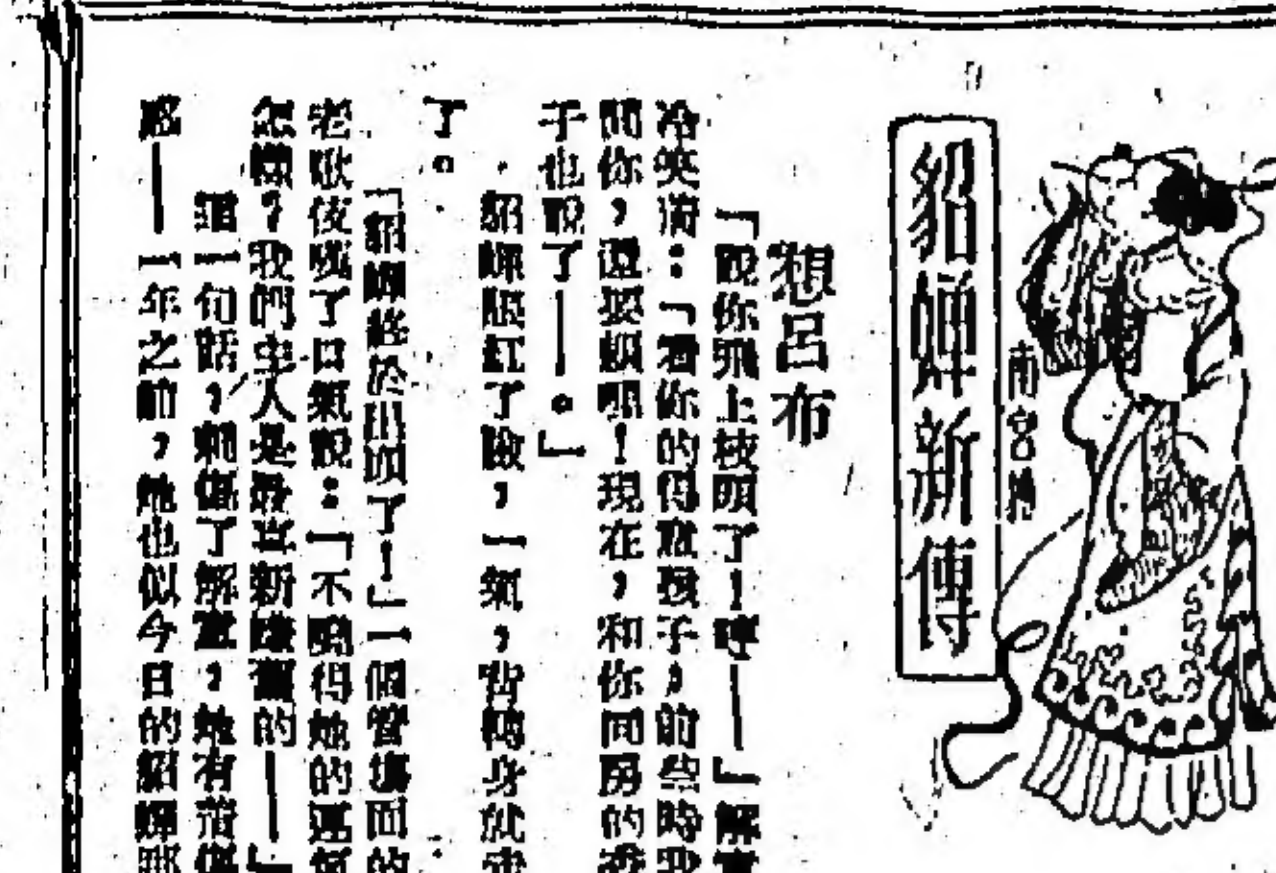 貂蟬新傳
南宮搏
想呂布
「說你飛上枝頭了!哼——」解
冷笑着:「看你的得意樣子,前些時我
問你,還要賴呢!現在,和你同房的
子也說了——。」
貂蟬眼紅了臉,一氣,背轉身就走
了。
「貂蟬終於出頭了!」一個管場面的
老歌伎嘆了口氣說:「不曉得她的運氣
怎樣?我們主人是最喜新嫌舊的——」
這一句話,刺傷了解,她有着
感——一年之前,她也似今日的貂蟬那